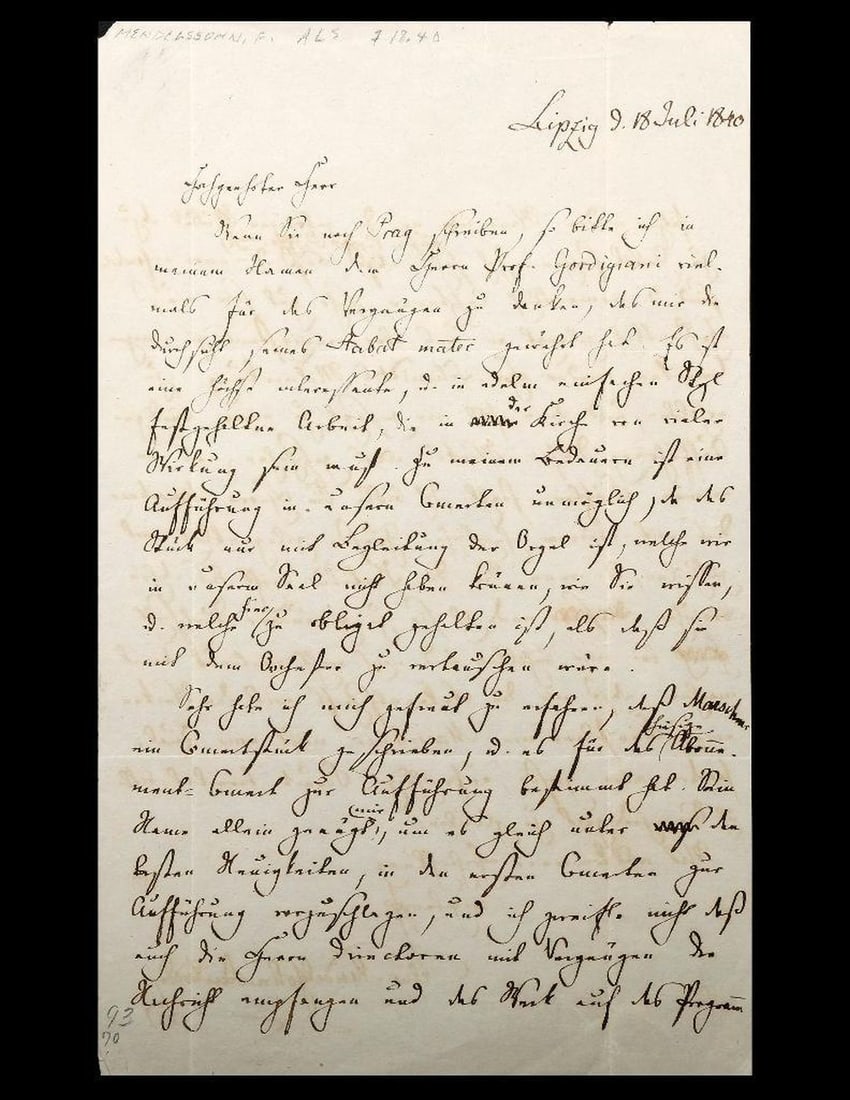 MENDELSSOHN, F. ALS 7 18.40
Leipzig d. 18 Juli 1840
Hochgeehrter Herr
Wenn Sie nach Prag schreiben, so bitte ich in
meinem Namen dem Herrn Prof. Gordigiani viel-
mals für das Vergnügen zu danken, das mir die
Durchsicht seines Stabat mater gewährt hat. Es ist
eine höchst interessante, u. in edlem einfachen Styl
festgehaltne Arbeit, die in der Kirche von vieler
Wirkung sein muß. Zu meinem Bedauern ist eine
Aufführung in unsern Concerten unmöglich, da das
Stück nur mit Begleitung der Orgel ist, welche wir
in unserm Saal nicht haben können, wie Sie wissen,
u. welche hier zu obligat gehalten ist, als daß sie
mit dem Orchester zu vertauschen wäre.
Sehr habe ich mich gefreut zu erfahren, daß Marschner
ein Concertstück geschrieben, u. es für das hiesige Abonne-
ment-Concert zur Aufführung bestimmt hat. Sein
Name allein genügt mir, um es gleich unter den
besten Neuigkeiten, in den ersten Concerten zur
Aufführung vorzuschlagen, und ich zweifle nicht daß
auch die Herrn Directoren mit Vergnügen die
Nachricht empfangen und das Werk auf das Programm
93
70